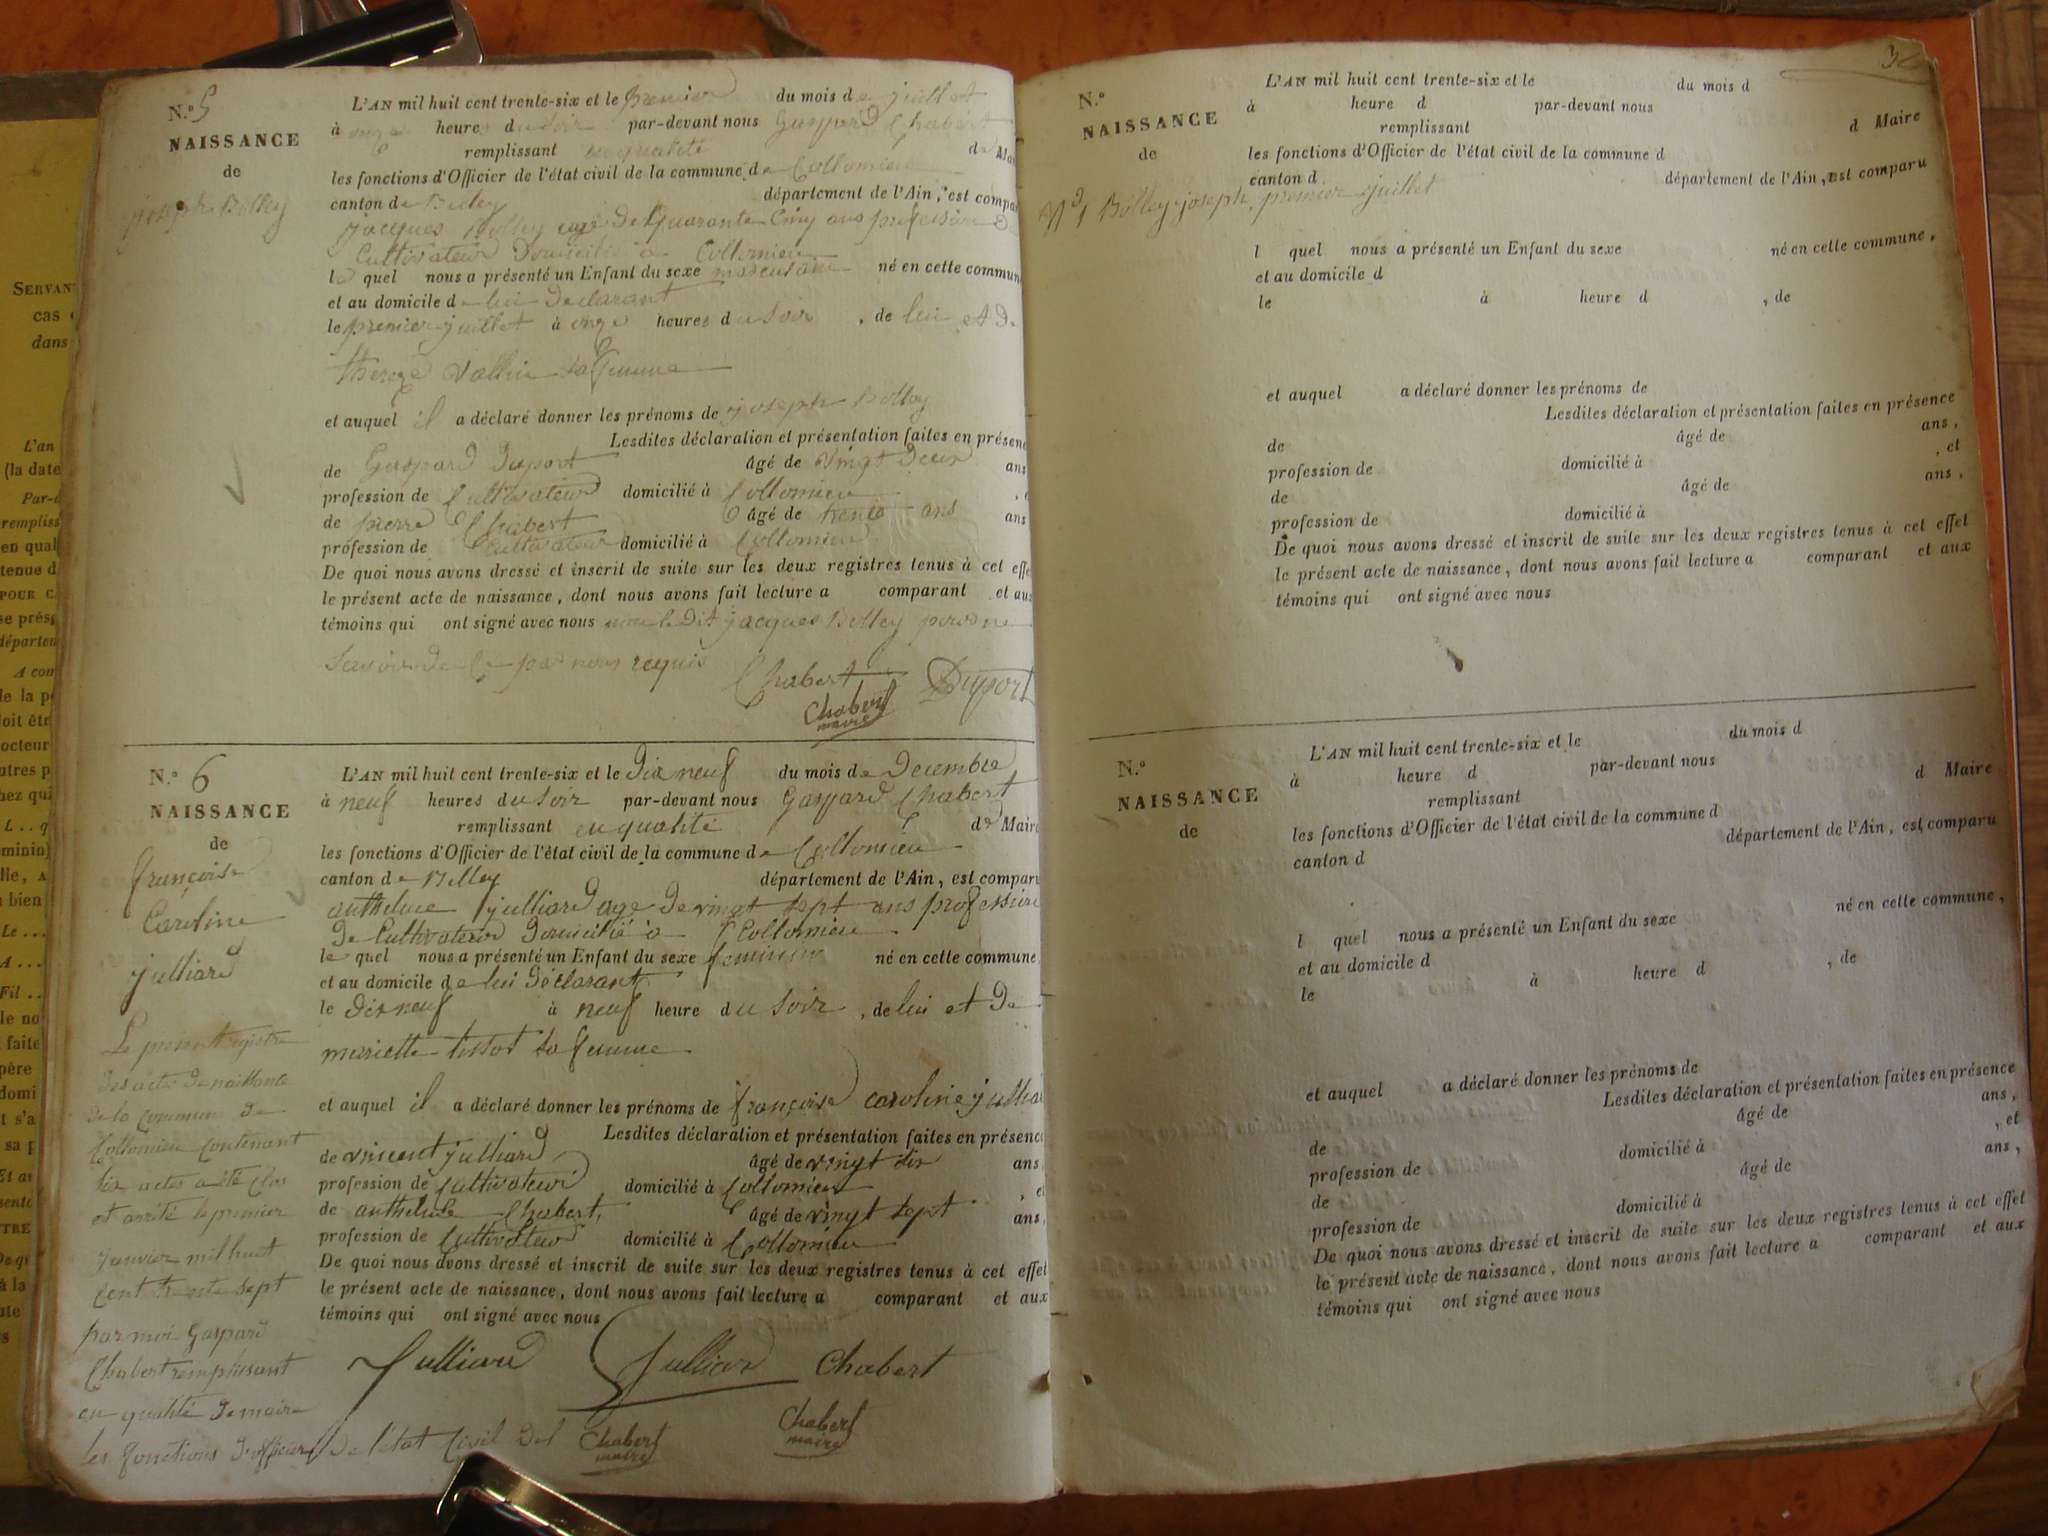 N.º 5
NAISSANCE
de
joseph Bolley
L'AN mil huit cent trente-six et le premier du mois de juillet
à onze heures du soir par-devant nous Gaspard Chabert
remplissant en qualité de Mai
les fonctions d'Officier de l'état civil de la commune de Collomieu
canton de Belley département de l'Ain, est compa
jacques Bolley age de quarante Cinq ans profession de
Cultivateur Domicilié à Collomieu
le quel nous a présenté un Enfant du sexe masculain né en cette commun
et au domicile de lui Declarant
le premier juillet à onze heures du soir , de lui et De
therese Vallin sa femme
et auquel il a déclaré donner les prénoms de joseph Bolley
Lesdites déclaration et présentation faites en présenc
de Gaspard Dupont âgé de vingt Deux ans
profession de Cultivateur domicilié à Collomieu
de pierre Chabert âgé de trente ans ans
profession de Cultivateur domicilié à Collomieu
De quoi nous avons dressé et inscrit de suite sur les deux registres tenus à cet effe
le présent acte de naissance, dont nous avons fait lecture a comparant et aux
témoins qui ont signé avec nous non ledit jacques Bolley
Savoir de Ce par nous requis
Chabert Dupont
Chabert
maire
N.º 6
NAISSANCE
de
françoise
Caroline
julliard
L'AN mil huit cent trente-six et le Dix neuf du mois de Decembre
à neuf heures du soir par-devant nous Gaspard Chabert
remplissant en qualité de Maire
les fonctions d'Officier de l'état civil de la commune de Collomieu
canton de Belley département de l'Ain, est comparu
anthelme julliard age De vingt sept ans profession
De Cultivateur Domicilié à Collomieu
le quel nous a présenté un Enfant du sexe feminin né en cette commune
et au domicile de lui Déclarant
le Dix neuf à neuf heure du soir , de lui et De
mariette tissot sa femme
et auquel il a déclaré donner les prénoms de françoise caroline jullia
Lesdites déclaration et présentation faites en présenc
de vincent julliard âgé de vingt six ans
profession de Cultivateur domicilié à Collomieu , e
de anthelme Chabert, âgé de vingt sept ans,
profession de Cultivateur domicilié à Collomieu
De quoi nous avons dressé et inscrit de suite sur les deux registres tenus à cet effet
le présent acte de naissance, dont nous avons fait lecture a comparant et aux
témoins qui ont signé avec nous
Julliard Julliard Chabert
Le present registre
des actes de naissance
de la Commune de
Collomieu Contenant
six actes a été Clos
et arrêté le premier
Janvier mil huit
Cent trente sept
par moi Gaspard
Chabert remplissant
en qualité De maire
les fonctions d'officier De l'état Civil
Chabert
maire
Chabert
maire
3
N.º
NAISSANCE
de
L'AN mil huit cent trente-six et le du mois d
à heure d par-devant nous
remplissant d Maire
les fonctions d'Officier de l'état civil de la commune d
canton d département de l'Ain, est comparu
Bolley joseph, premier juillet
l quel nous a présenté un Enfant du sexe né en cette commune,
et au domicile d
le à heure d , de
et auquel a déclaré donner les prénoms de
Lesdites déclaration et présentation faites en présence
de âgé de ans,
profession de domicilié à , et
de âgé de ans,
profession de domicilié à
De quoi nous avons dressé et inscrit de suite sur les deux registres tenus à cet effet
le présent acte de naissance, dont nous avons fait lecture a comparant et aux
témoins qui ont signé avec nous
N.º
NAISSANCE
de
L'AN mil huit cent trente-six et le du mois d
à heure d par-devant nous
remplissant d Maire
les fonctions d'Officier de l'état civil de la commune d
canton d département de l'Ain, est comparu
l quel nous a présenté un Enfant du sexe né en cette commune,
et au domicile d
le à heure d , de
et auquel a déclaré donner les prénoms de
Lesdites déclaration et présentation faites en présence
de âgé de ans,
profession de domicilié à , et
de âgé de ans,
profession de domicilié à
De quoi nous avons dressé et inscrit de suite sur les deux registres tenus à cet effet
le présent acte de naissance, dont nous avons fait lecture a comparant et aux
témoins qui ont signé avec nous